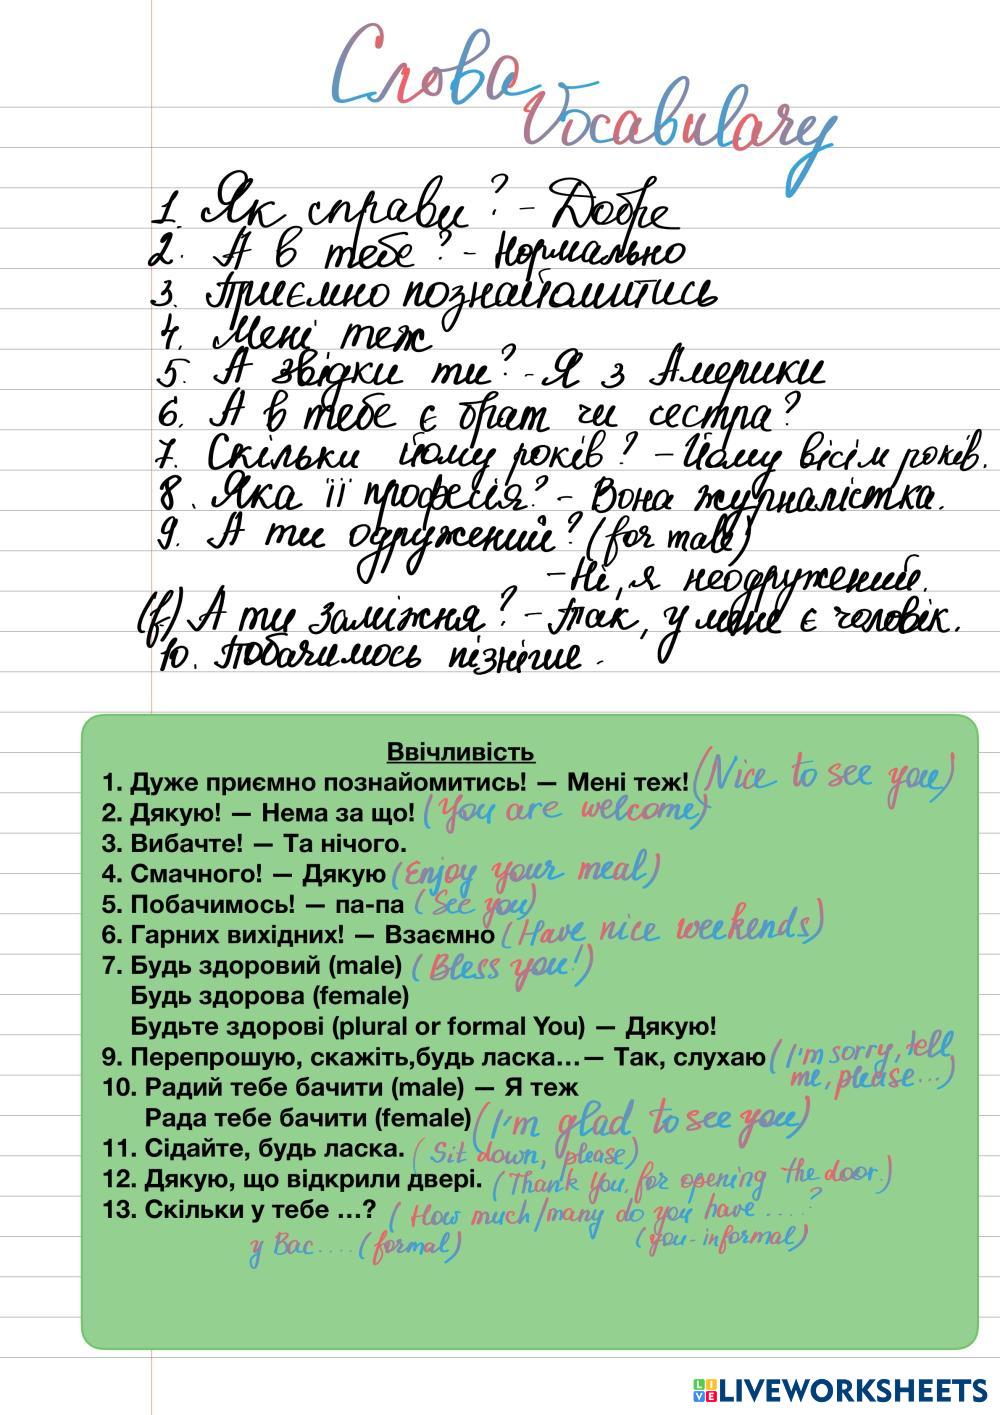 Слова
Vocabulary
1. Як справи? - Добре
2. А в тебе? - Нормально
3. Приємно познайомитись
4. Мені теж
5. А звідки ти? - Я з Америки
6. А в тебе є брат чи сестра?
7. Скільки йому років? - Йому вісім років.
8. Яка її професія? - Вона журналістка.
9. А ти одружений? (for male)
- Ні, я неодружений.
(f) А ти заміжня? - Так, у мене є чоловік.
10. Побачимось пізніше.
Ввічливість
1. Дуже приємно познайомитись! — Мені теж! (Nice to see you)
2. Дякую! — Нема за що! (You are welcome)
3. Вибачте! — Та нічого.
4. Смачного! — Дякую (Enjoy your meal)
5. Побачимось! — па-па (See you)
6. Гарних вихідних! — Взаємно (Have nice weekends)
7. Будь здоровий (male) (Bless you!)
Будь здорова (female)
Будьте здорові (plural or formal You) — Дякую!
9. Перепрошую, скажіть,будь ласка...— Так, слухаю (I'm sorry, tell
me, please...)
10. Радий тебе бачити (male) — Я теж
Рада тебе бачити (female) (I'm glad to see you)
11. Сідайте, будь ласка. (Sit down, please)
12. Дякую, що відкрили двері. (Thank you, for opening the door.)
13. Скільки у тебе ...? (How much/many do you have ....?
у Вас .... (formal) (you-informal)
LIVEWORKSHEETS